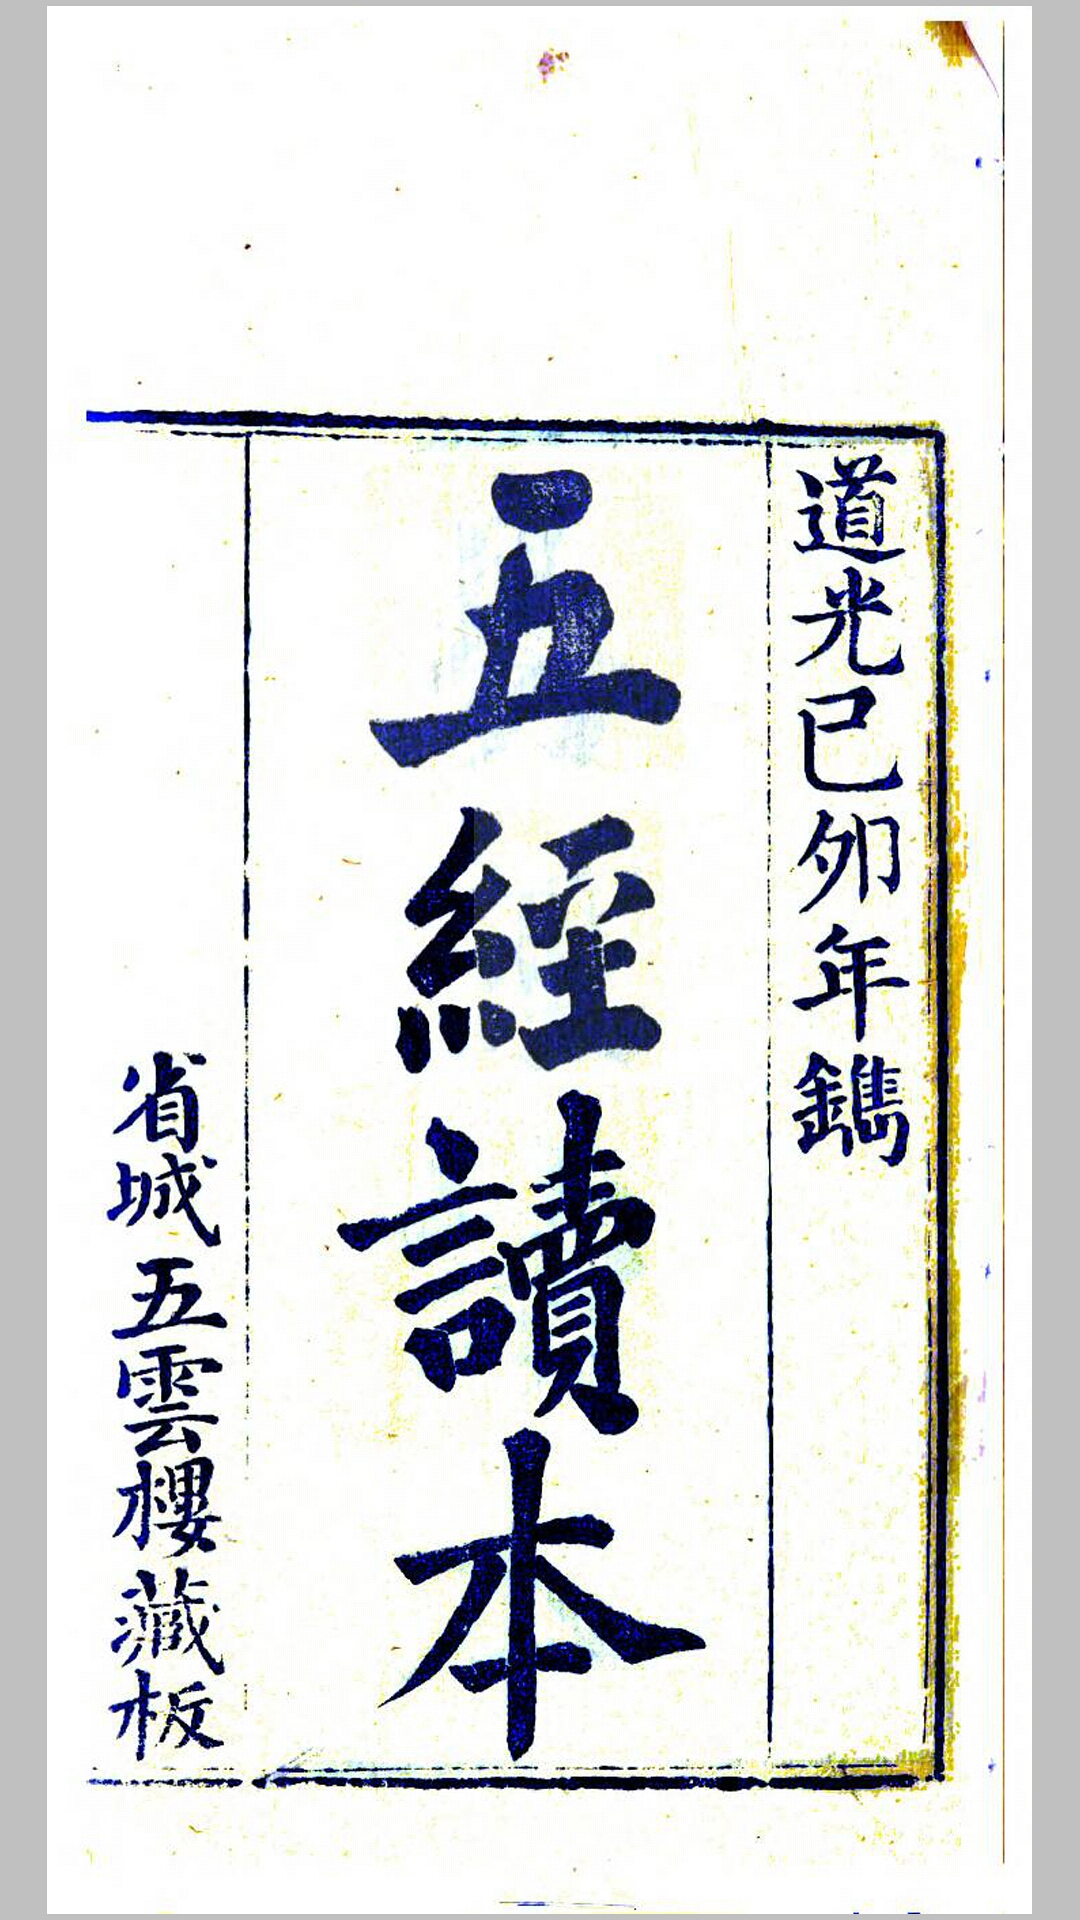 道光已卯年鐫
五經讀本
省城五雲樓藏板